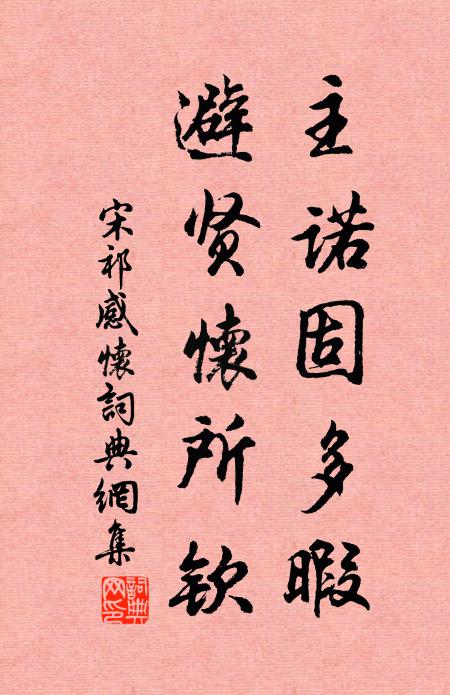 主诺固多暇
避贤懷所钦
宋祁感懷詞典網集
詞典网印